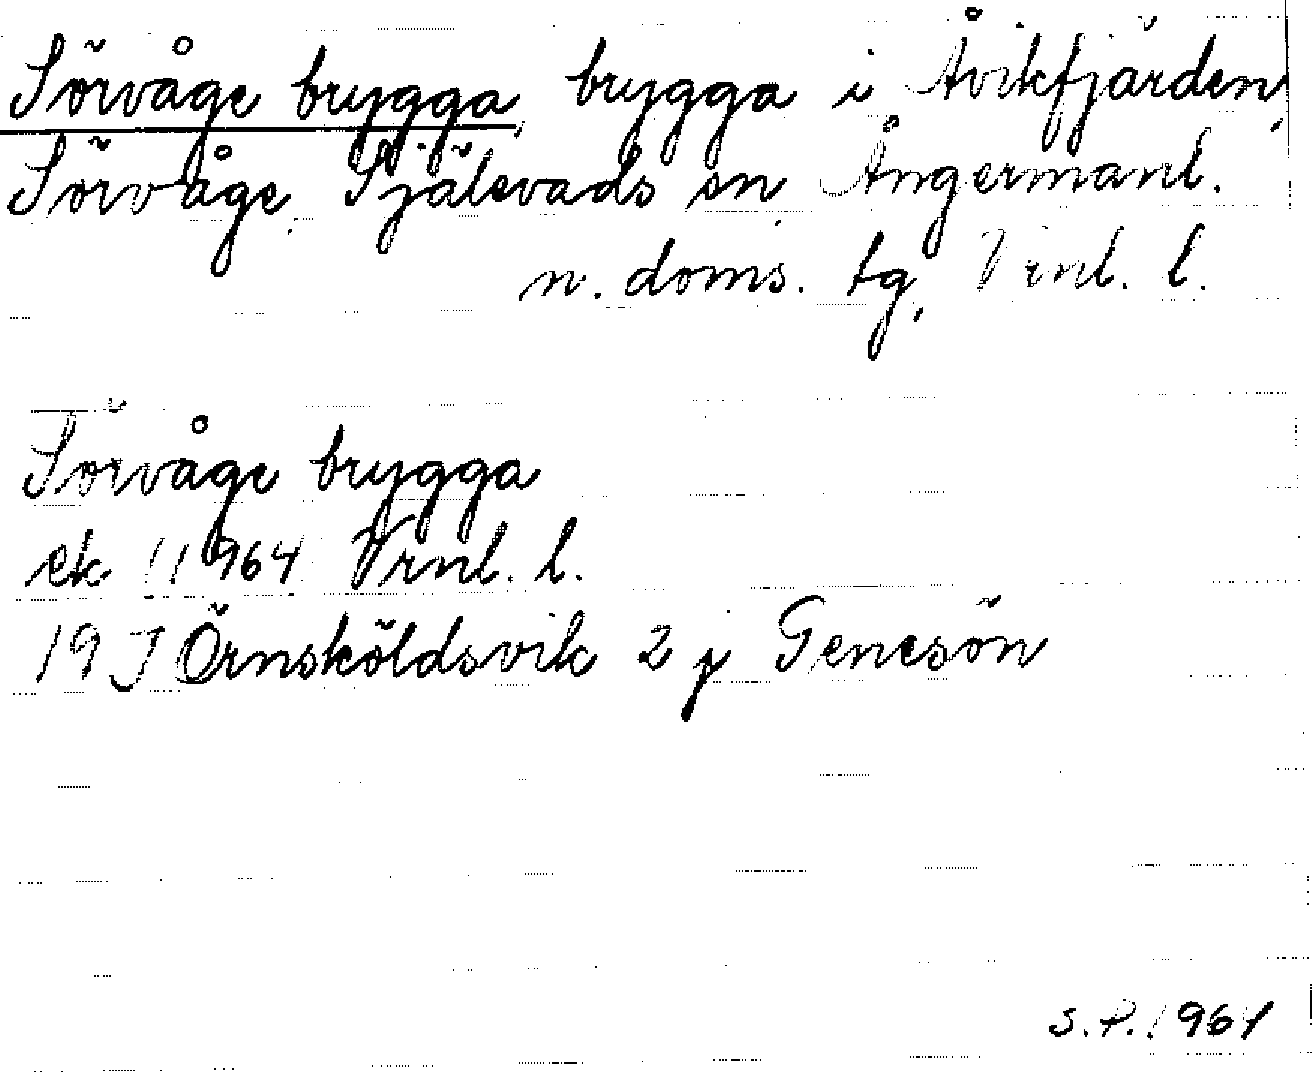 Sörvåge brygga, brygga i Åvikfjärden,
Sörvåge, Själevads sn, Ångermanl.
n. doms. tg, Vrnl. l.
Sörvåge brygga
ek 11964 Vrnl. l.
19 J Örnsköldsvik 2 j Genesön
S.P. 1964